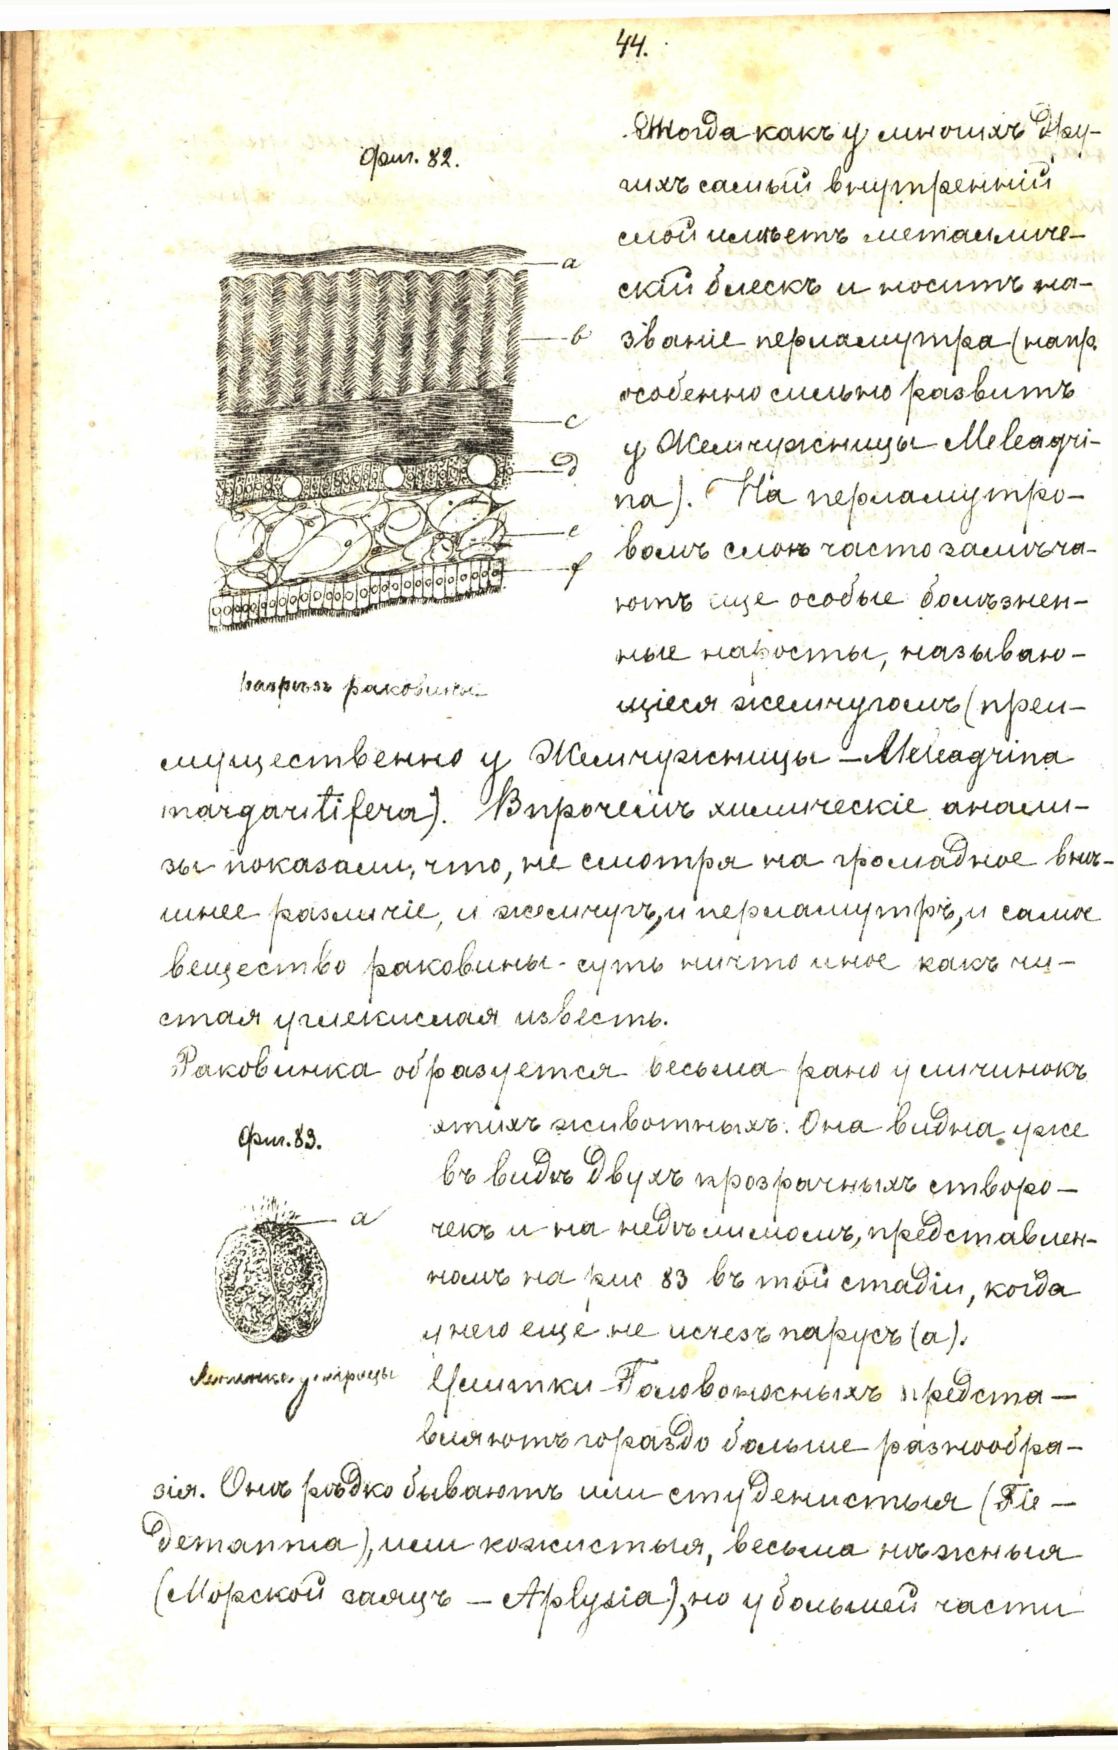 44.
Фиг. 82.
Тогда какъ у многихъ дру-
гихъ самый внутренній
слой имѣетъ металличе-
скій блескъ и носитъ на-
званіе перламутра (напр.
особенно сильно развитъ
у Жемчужницы Meleagri-
na). На перламутро-
вомъ слоѣ часто замѣча-
ютъ еще особые болѣзнен-
ные наросты, называю-
щіеся жемчугомъ (преи-
a
b
c
d
e
f
разрѣзъ раковины
мущественно у Жемчужницы – Meleagrina
margaritifera). Впрочемъ химическіе анали-
зы показали, что, не смотря на громадное внѣ-
шнее различіе, и жемчугъ, и перламутръ, и самое
вещество раковины - суть ничто иное какъ чи-
стая углекислая известь.
Раковинка образуется весьма рано у личинокъ
Фиг. 83.
этихъ животныхъ. Она видна уже
въ видѣ двухъ прозрачныхъ створо-
чекъ и на недѣлимомъ, представлен-
номъ на рис 83 въ той стадіи, когда
у него еще не исчезъ парусъ (а).
a
Личинка устрицы
Улитки – Головоносныхъ предста-
вляютъ гораздо больше разнообра-
зія. Онѣ рѣдко бываютъ или студенистыя (Tie-
demannia), или кожистыя, весьма нѣжныя
(Морской заяцъ – Aplysia), но у большей части